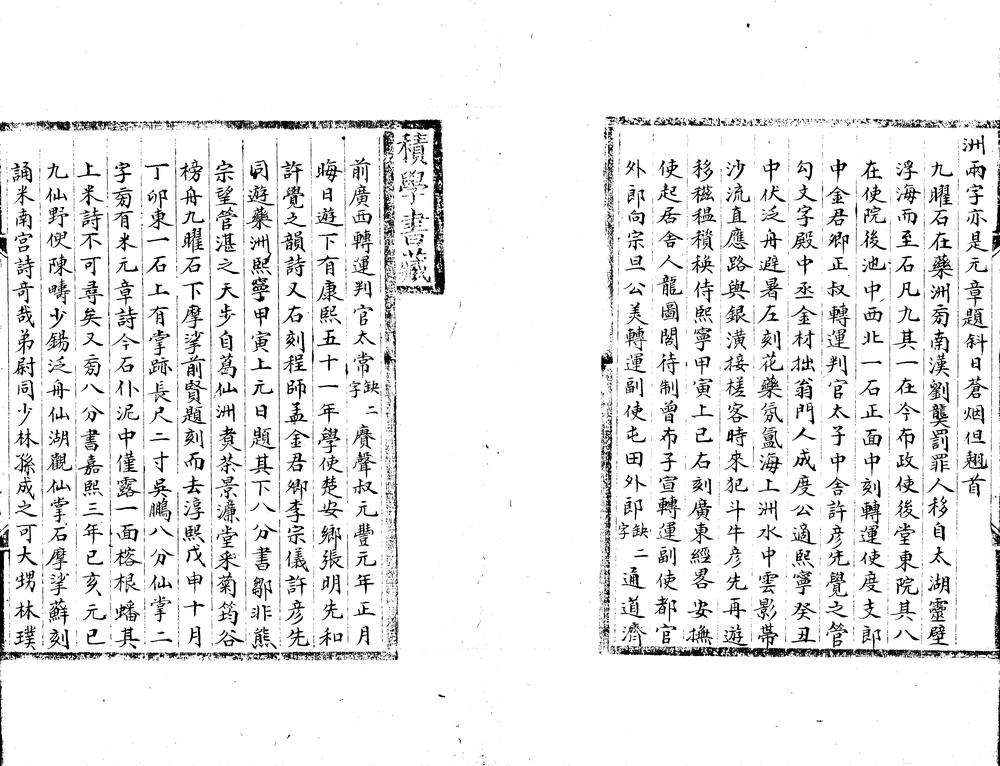 洲兩字亦是元章題斜日蒼烟但翹首
九曜石在藥洲旁南漢劉龑罰罪人移自太湖靈壁
浮海而至石凡九其一在今布政使後堂東院其八
在使院後池中西北一石正面中刻轉運使度支郎
中金君卿正叔轉運判官太子中舍許彦先覺之管
勾文字殿中丞金材拙翁門人成度公適熙寧癸丑
中伏泛舟避暑左刻花藥氛氳海上洲水中雲影帶
沙流直應路與銀潢接槎客時來犯斗牛彦先再遊
移磁穏積稧侍熙寧甲寅上巳右刻廣東經畧安撫
使起居舍人龍圖閣待制曾布子宣轉運副使都官
外郎向宗旦公美轉運副使屯田外郎缺二字通道濟
積學書藏
前廣西轉運判官太常缺二字賡聲叔元豐元年正月
晦日遊下有康熙五十一年學使楚安鄉張明先和
許覺之韻詩又石刻程師孟金君卿李宗儀許彦先
同遊藥洲熙寧甲寅上元日題其下八分書鄒非熊
宗望管湛之天步自葛仙洲煑茶景濂堂采菊筠谷
榜舟九曜石下摩挲前賢題刻而去淳熙戊申十月
丁卯東一石上有掌跡長尺二寸吳鵬八分仙掌二
字旁有米元章詩今石仆泥中僅露一面榕根蟠其
上米詩不可尋矣又旁八分書嘉熙三年已亥元巳
九仙野叟陳疇少錫泛舟仙湖觀仙掌石摩挲蘚刻
誦米南宫詩竒哉弟尉同少林孫成之可大甥林璞